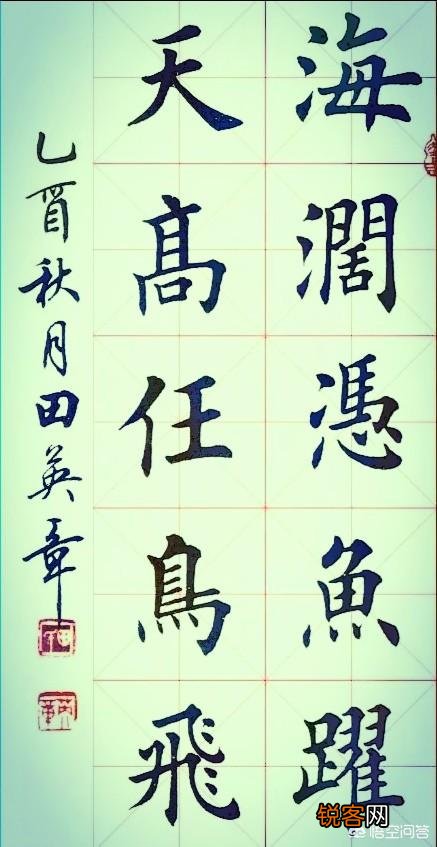 海濶憑魚躍
天髙任鳥飛
乙酉秋月田英章
锐客网
悟空问答